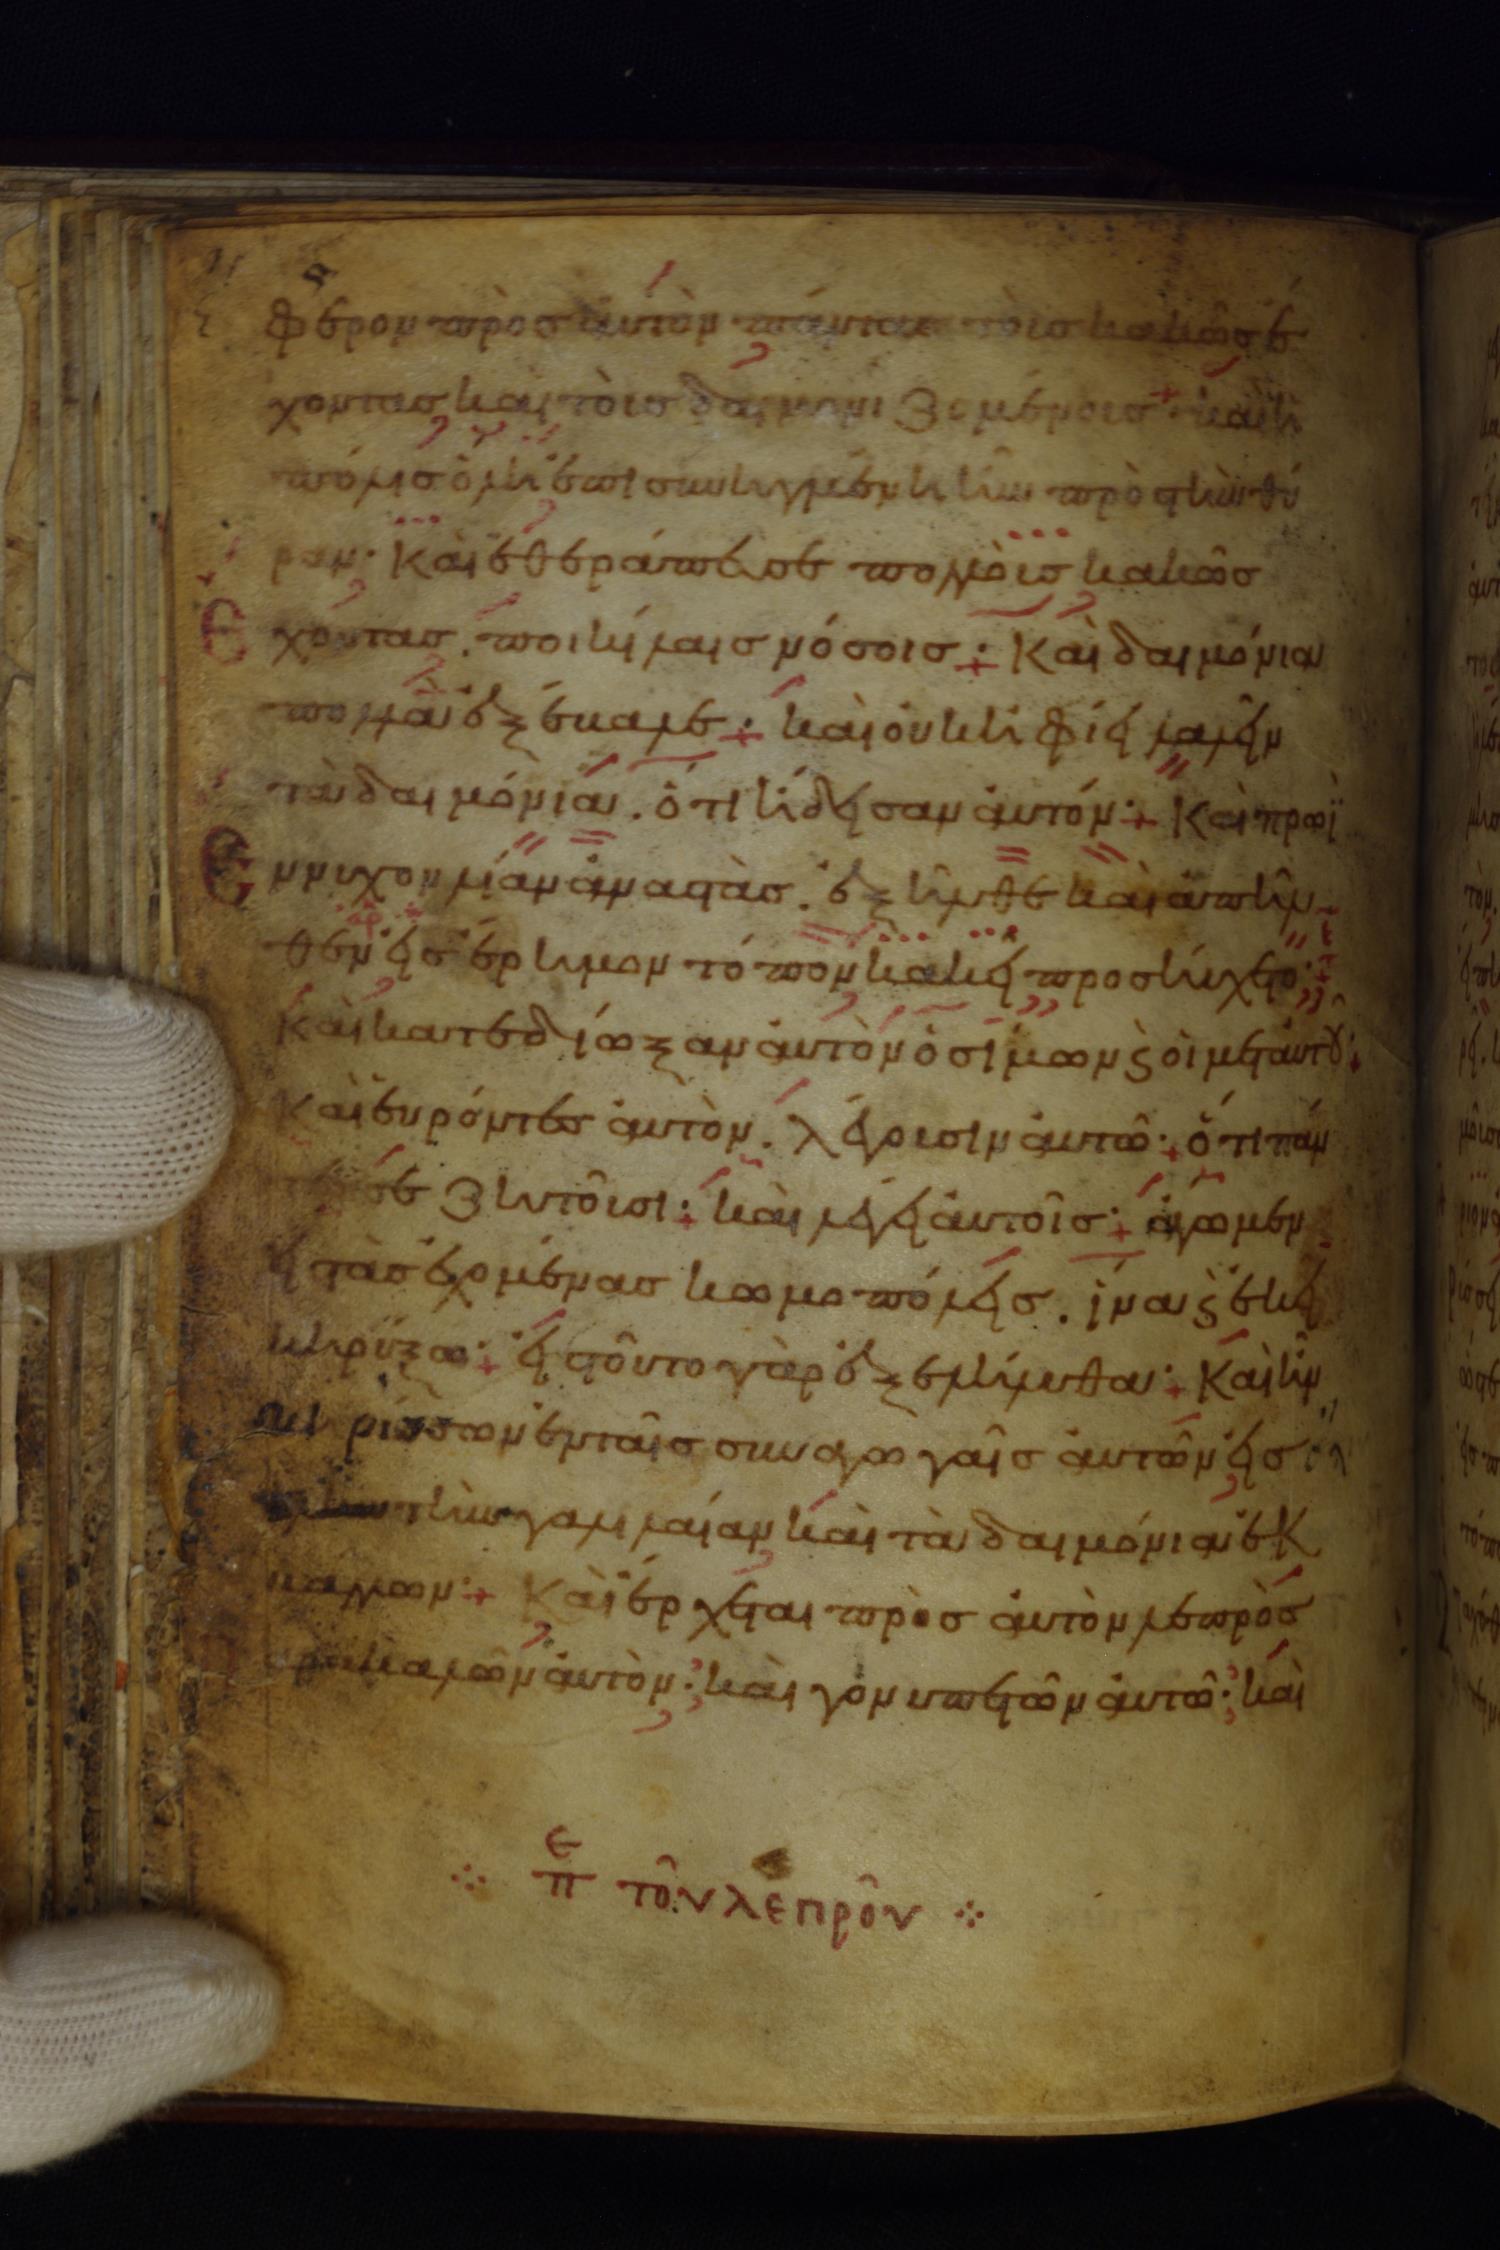 φέρον πρὸς ἀυτὸν πάντας τὸις κακῶς ἐ
χοντας καὶ τὸις δαιμονιζομένοις· κὰι ἡ
πόλισ ὅλη ἐπισυνηγμένη ἦν πρὸς τὴν θύ
ραν· Κὰι ἐθεράπευσε πολλὸις κακῶσ
ἔχοντασ. ποικίλαισ νόσοισ: Κὰι δαιμόνια
πολλὰ ἐξέβαλε: κὰι ὀυκ ἠφίει λαλεῖν
τὰ δαιμόνια. ὅτι ἤδεισαν ἀυτόν· Κὰι πρωῒ
Ἔννυχον λίαν ἀναστὰσ. ἐξῆλθε κὰι ἀπῆλ
θεν εἰσ ἔρημον τόπον κακεῖ προσηύχετο·
Κὰι κατεδίωξαν ἀυτὸν ὁ σίμων ϛ ὁι μετ ἀυτοῦ·
Κὰι ἑυρόντεσ ἀυτὸν. λέγουσιν ἀυτῶ· ὅτι πάν
τεσ σε ζητοῦσι: κὰι λέγει ἀυτοῖσ· ἄγωμεν
εἰ τὰσ ἐχομένας κωμοπόλεισ. ἵνα ϛ ἐκεῖ
κηρύξω· εἰσ τοῦτο γὰρ ἐξελήλυθα· Κὰι ἦν
κηρύσσων ἐν ταῖσ συναγωγαῖσ ἀυτῶν εἰσ
τὴν γαλιλαίαν κὰι τὰ δαιμόνια ἐκ
βάλλων· Κὰι ἔρχεται πρὸσ ἀυτὸν λεπρὸσ
παρακαλῶν ἀυτὸν· κὰι γονυπετῶν ἀυτῶ· κὰι
Ε
Π τοῦ λεπροῦ